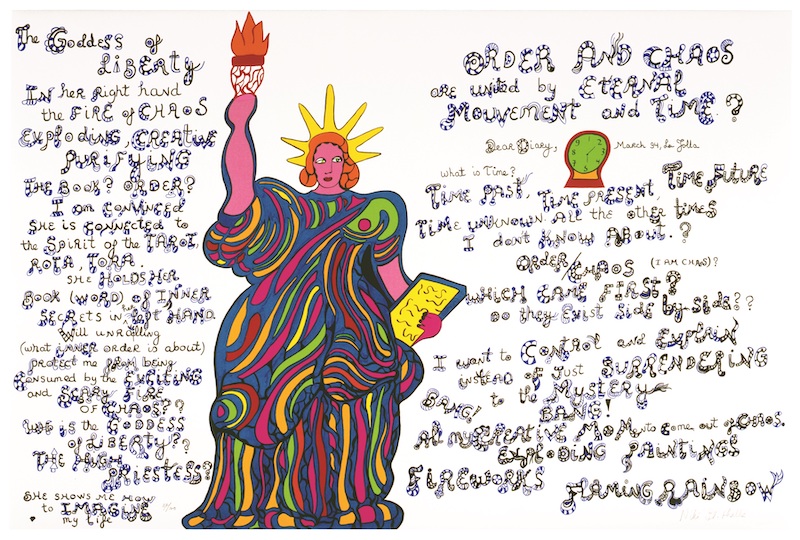 The Goddess of
Liberty
In her right hand
the Fire of Chaos
Exploding, Creative
Purifying
The Book? Order?
I am convinced
She is connected to
the spirit of the Tarot,
Rota, Tora.
She holds her
Book (word) of Inner
Secrets in left hand
Will unrolling
(what inner order is about)
protect me from being
Consumed by the Exciting
and Scary Fire
of Chaos??
Who is the Goddess
of Liberty??
The High
Priestess?
She shows me how
to Imagine
my life
Order and Chaos
are united by Eternal
Mouvement and Time?
Dear Diary, March 94, La Jolla
what is Time?
Time Past, Time Present, Time Future
Time unknown, All the other times
I don't know About.?
Order/Chaos (I am chaos)?
which came first?
Do they exist side by side??
I want to Control and Explain
instead of just Surrendering
to the Mystery
Bang! Bang!
All my Creative Moments come out of Chaos.
Exploding Paintings
Fireworks Flaming Rainbow